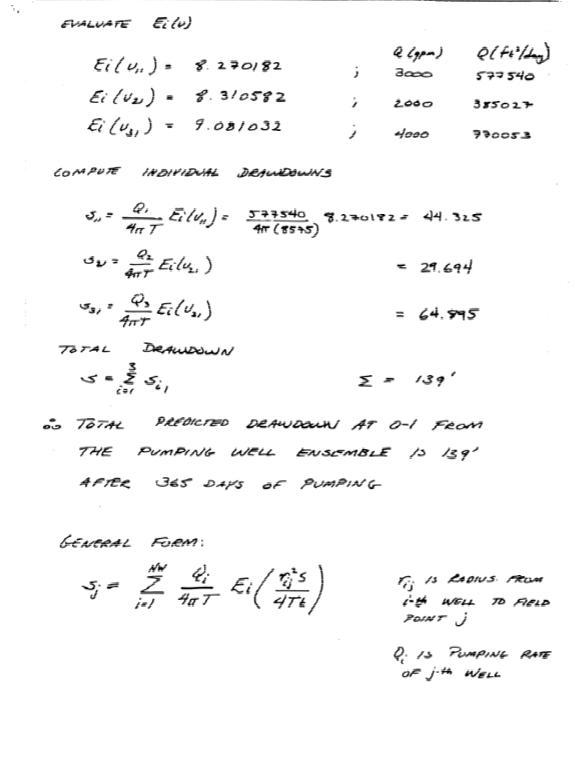 EVALUATE Ei(u)
Q (gpm) Q (ft³/day)
Ei(u₁₁) = 8.270182 ; 3000 577540
Ei(u₂₁) = 8.310582 ; 2000 385027
Ei(u₃₁) = 9.081032 ; 4000 770053
COMPUTE INDIVIDUAL DRAWDOWNS
s₁₁ = Q₁/4πT Ei(u₁₁) = 577540/4π(8575) 8.270182 = 44.325
s₂₁ = Q₂/4πT Ei(u₂₁) = 29.694
s₃₁ = Q₃/4πT Ei(u₃₁) = 64.895
TOTAL DRAWDOWN
s = Σ_{i=1}^{3} s_{i1} Σ = 139'
∴ TOTAL PREDICTED DRAWDOWN AT O-1 FROM
THE PUMPING WELL ENSEMBLE IS 139'
AFTER 365 DAYS OF PUMPING
GENERAL FORM:
s_j = Σ_{i=1}^{NW} Q_i/4πT Ei(r_{ij}²S/4Tt)
r_{ij} IS RADIUS FROM
i-th WELL TO FIELD
POINT j
Q_i IS PUMPING RATE
OF j-th WELL